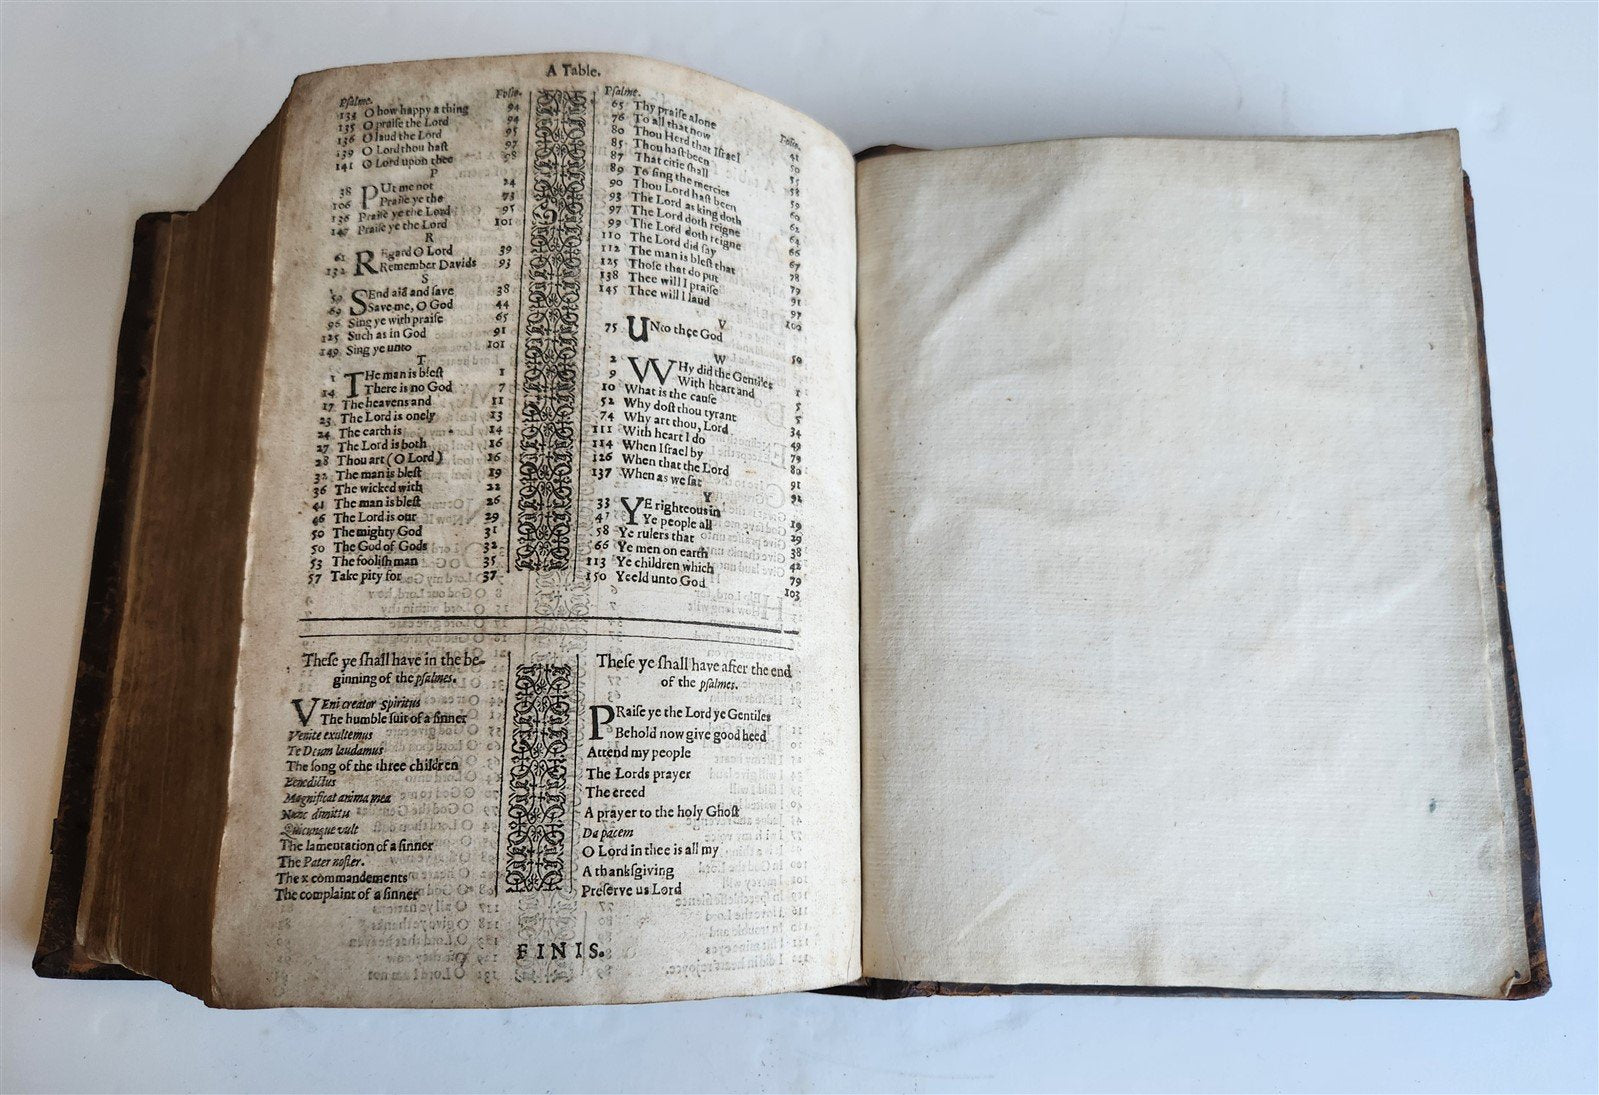 A Table.
Psalme. Folio.
134 O how happy a thing 94
135 O praiſe the Lord 94
136 O laud the Lord 95
139 O Lord thou haſt 97
141 O Lord upon thee 98
P
38 PUt me not 24
106 Praiſe ye the 73
136 Praiſe ye the Lord 95
147 Praiſe ye the Lord 101
R
61 REgard O Lord 39
132 Remember Davids 93
S
59 SEnd aid and ſave 38
69 Save me, O God 44
96 Sing ye with praiſe 65
125 Such as in God 91
149 Sing ye unto 101
T
1 THe man is bleſt 1
14 There is no God 7
17 The heavens and 11
23 The Lord is onely 13
24 The earth is 14
27 The Lord is both 16
28 Thou art (O Lord) 16
32 The man is bleſt 19
36 The wicked with 22
41 The man is bleſt 26
46 The Lord is our 29
50 The mighty God 31
50 The God of Gods 32
53 The fooliſh man 35
57 Take pity for 37
Psalme. Folio.
65 Thy praiſe alone 41
76 To all that now 50
80 Thou Herd that Iſrael
85 Thou haſt been 58
87 That citie ſhall 59
89 To ſing the mercies 60
90 Thou Lord haſt been 62
93 The Lord as king doth 64
97 The Lord doth reigne 66
99 The Lord doth reigne 67
110 The Lord did ſay 78
112 The man is bleſt that 79
125 Thoſe that do put 91
138 Thee will I praiſe 97
145 Thee will I laud 100
V
75 UNto thee God 50
W
2 WHy did the Gentiles 1
9 With heart and 5
10 What is the cauſe 5
52 Why doſt thou tyrant 34
74 Why art thou, Lord 49
111 With heart I do 79
114 When Iſrael by 80
126 When that the Lord 91
137 When as we ſat
Y
33 YE righteous in 19
47 Ye people all 29
58 Ye rulers that 38
66 Ye men on earth 42
113 Ye children which 79
150 Yeeld unto God 103
Theſe ye ſhall have in the be-
ginning of the pſalmes.
VEni creator Spiritus
The humble ſuit of a ſinner
Venite exultemus
Te Deum laudamus
The ſong of the three children
Benedictus
Magnificat anima mea
Nunc dimittis
Quicunque vult
The lamentation of a ſinner
The Pater noſter.
The x commandements
The complaint of a ſinner
Theſe ye ſhall have after the end
of the pſalmes.
PRaiſe ye the Lord ye Gentiles
Behold now give good heed
Attend my people
The Lords prayer
The creed
A prayer to the holy Ghoſt
Da pacem
O Lord in thee is all my
A thankſgiving
Preſerve us Lord
FINIS.